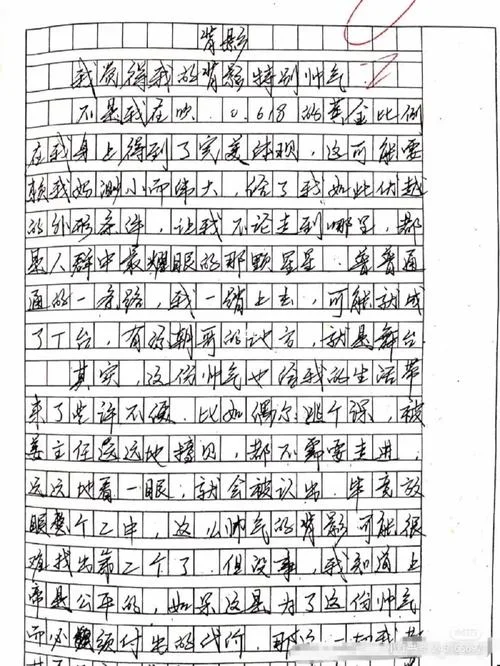 背影
我觉得我的背影特别帅气.
不是我在吹.0.618的黄金比例
在我身上得到了完美体现,这可能要
赖我妈 小而伟大,给了我如此优越
的外形条件,让我不论走到哪里,都
是人群中最耀眼的那颗星星.普普通
通的一条路,我一踏上去,可能就成
了T台,有 朝哥的地方,就是舞台.
其实,这份帅气也给我的生活带
来了些许不便.比如偶尔逃个课,被
姜主任远远地撞见,都不需要走进,
远远地看一眼,就会被认出.毕竟放
眼整个二中,这么帅气的背影可能很
难找出第二个了.但没事,我知道上
帝是公平的,如果这是为了这份帅气
而必须付出的代价,那